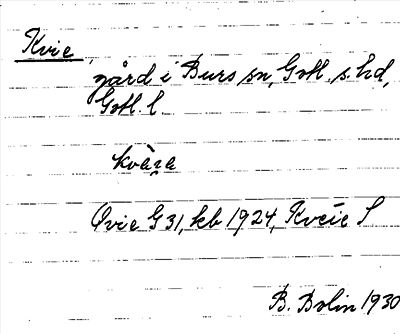 Kvie,
gård i Burs sn, Gotl. s. hd,
Gotl. l.
Qvie G 31, kb 1924, Kveie S
B. Bolin 1930